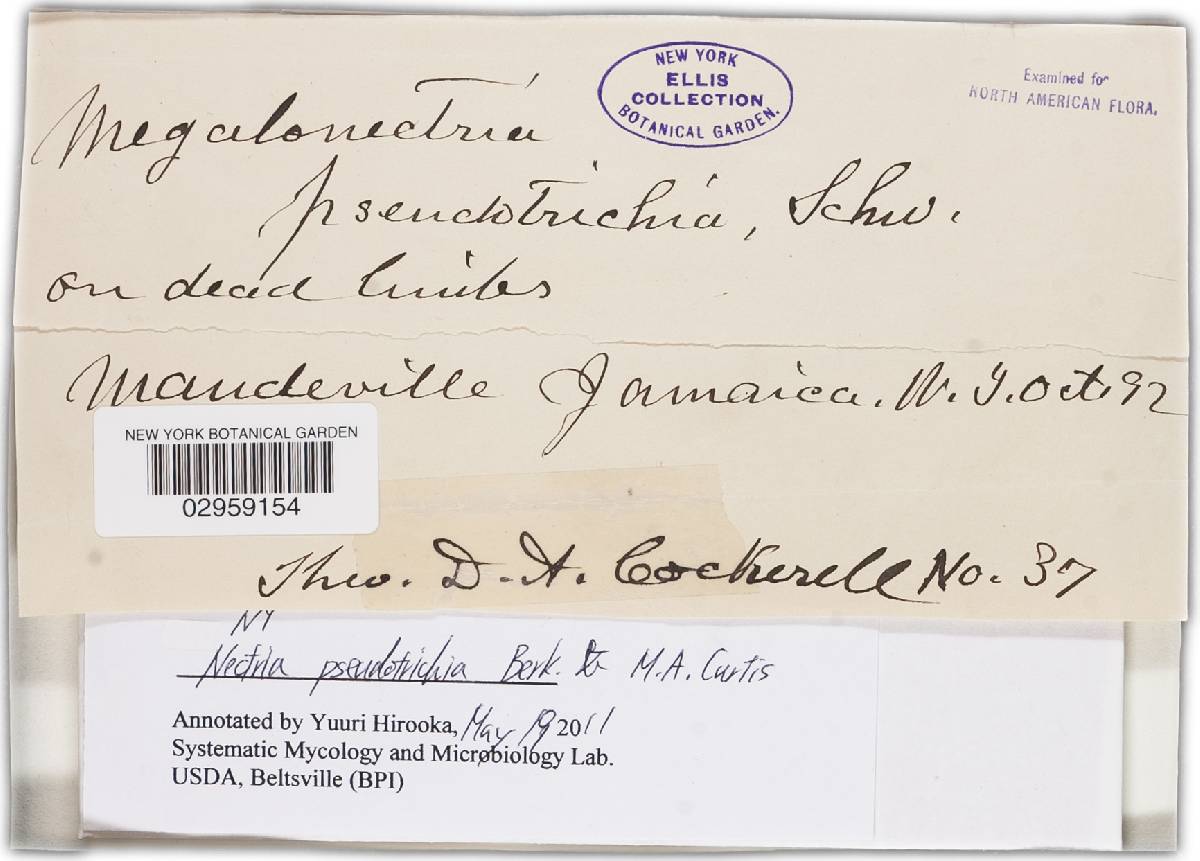 Megalonectria
NEW YORK
ELLIS
COLLECTION
BOTANICAL GARDEN.
Examined for
NORTH AMERICAN FLORA.
pseudotrichia, Schw.
on dead limbs
Mandeville Jamaica. W. I. Oct. 92
NEW YORK BOTANICAL GARDEN
02959154
Theo. D. A. Cockerell No. 37
NY
Nectria pseudotrichia Berk. & M.A. Curtis
Annotated by Yuuri Hirooka, May 19 2011
Systematic Mycology and Microbiology Lab.
USDA, Beltsville (BPI)